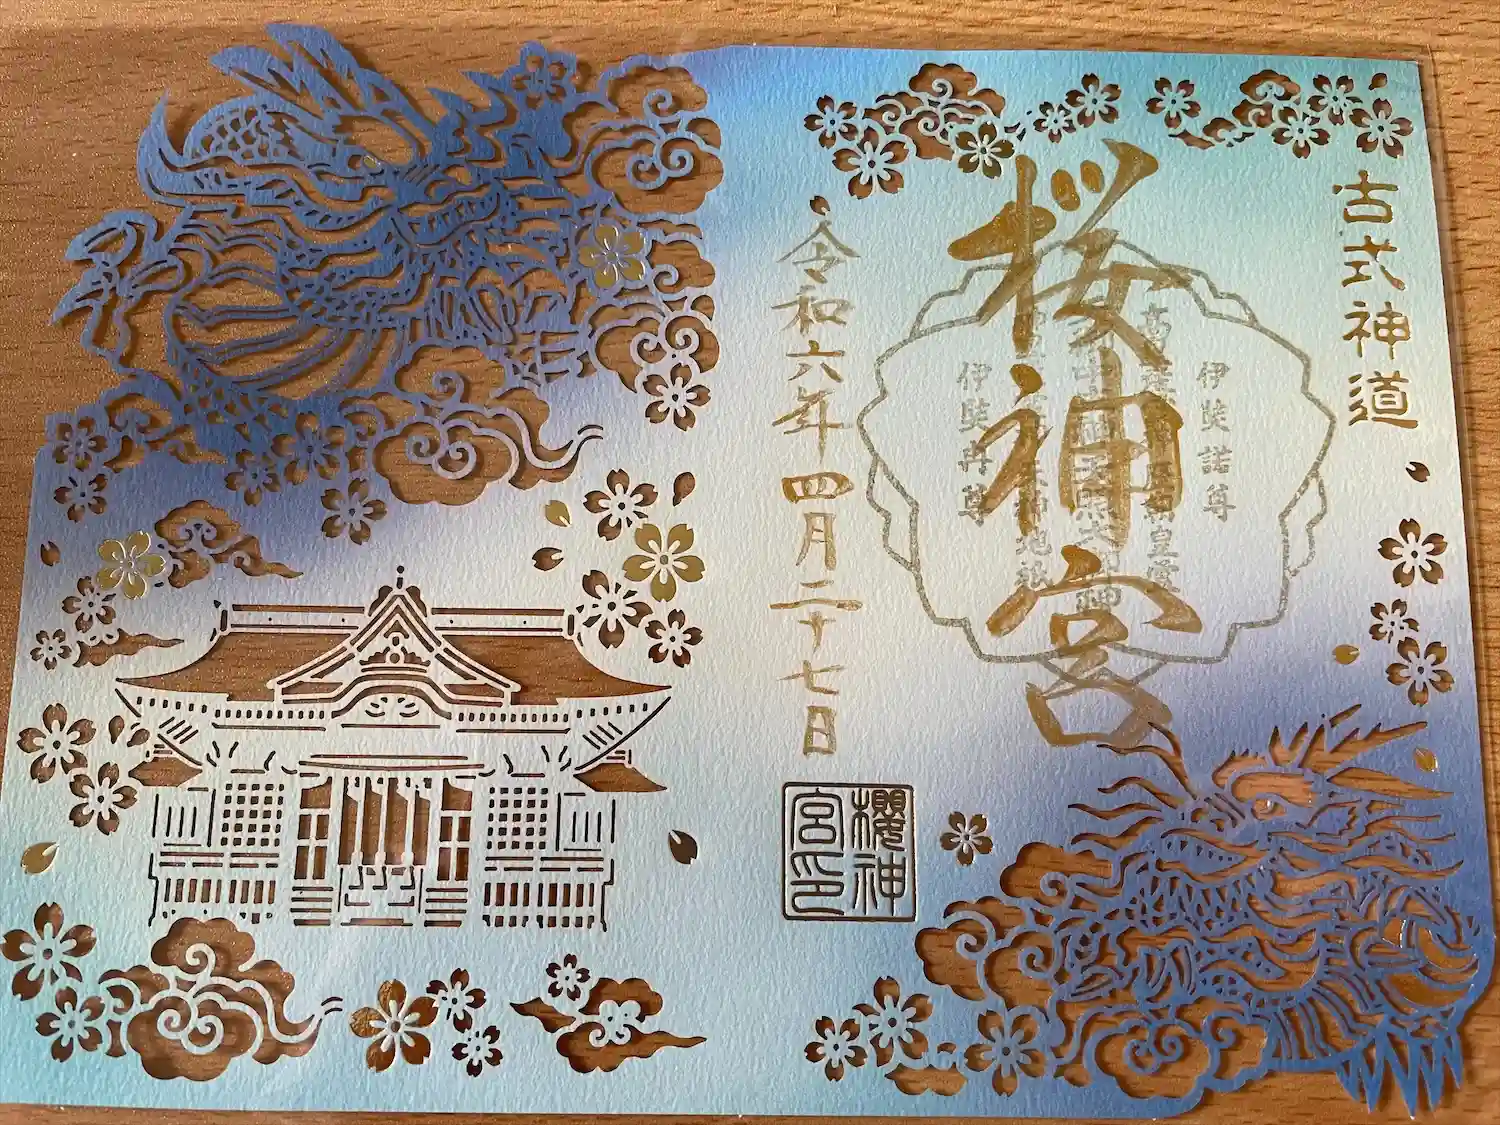 古式神道
伊奘諾尊
桜神宮
伊奘冉尊
令和六年四月二十七日
櫻神
宮印